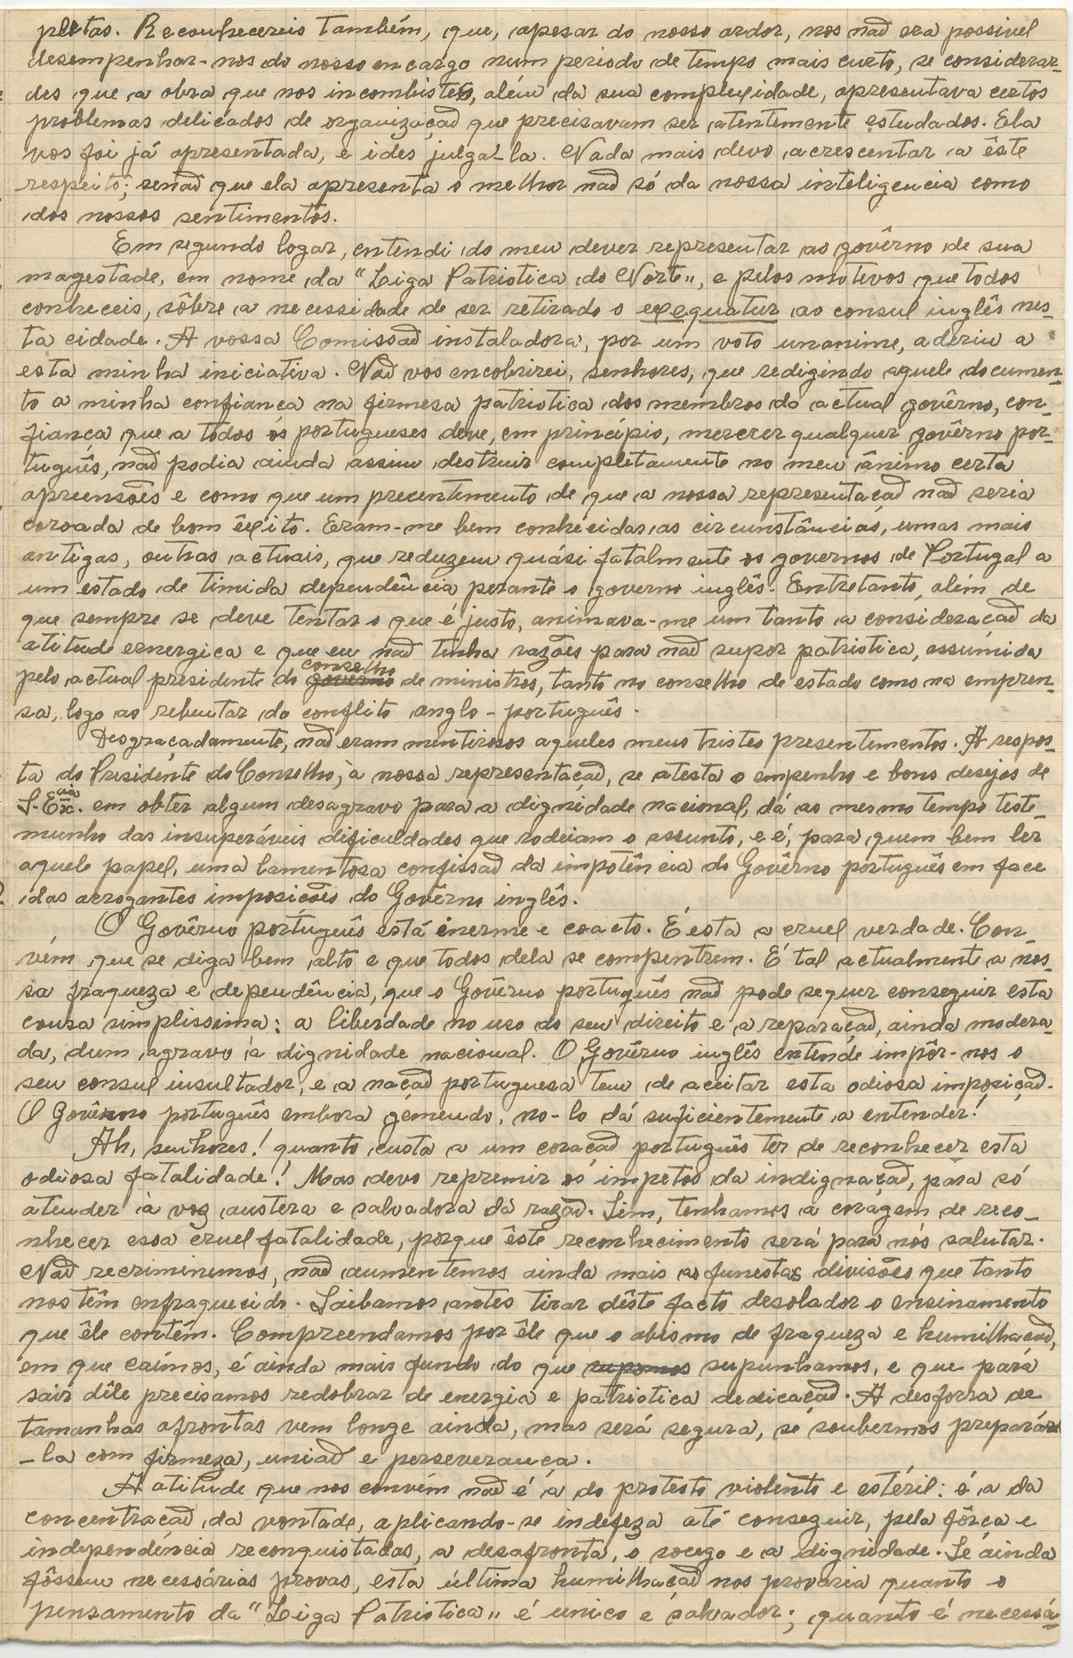 pletas. Reconhecereis também, que, apesar do nosso ardor, nos não era possivel
desempenhar-nos do nosso encargo num periodo de tempo mais curto, se considerar-
des que a obra que nos incombistes, além da sua complexidade, apresentava certos
problemas delicados de organização que precisavam ser atentimente estudados. Ela
vos foi já apresentada, e ides julgá-la. Nada mais devo acrescentar a êste
respeito; senão que ela apresenta o melhor não só da nossa inteligencia como
dos nossos sentimentos.
Em segundo logar, entendi do meu dever representar ao govêrno de sua
magestade, em nome da "Liga Patriotica do Norte", e pelos motivos que todos
conheceis, sôbre a necessidade de ser retirado o exequatur ao consul inglês nes-
ta cidade. A vossa Comissão instaladora, por um voto unanime, aderiu a
esta minha iniciativa. Não vos encobrirei, senhores, que redigindo aquele documen-
to a minha confiança na firmesa patriotica dos membros do actual govêrno, con-
fiança que a todos os portugueses deve, em princípio, merecer qualquer govêrno por-
tuguês, não podia ainda assim destruir completamente no meu ânimo certa
apreensões e como que um precentimento de que a nossa representação não seria
coroada de bom êxito. Eram-me bem conhecidas as circunstâncias, umas mais
antigas, outras actuais, que reduzem quási fatalmente os governos de Portugal a
um estado de timida dependência perante o governo inglês. Entretanto, além de
que sempre se deve tentar o que é justo, animava-me um tanto a consideração da
atitude eenergica e que eu não tinha razões para não supor patriotica, assumida
pelo actual presidente do governo conselho de ministros, tanto no conselho de estado como na empren-
sa, logo ao rebentar do conflito anglo-português.
Desgraçadamente, não eram mentirosos aqueles meus tristes presentimentos. A respos-
ta do Presidente do Conselho, à nossa representação, se atesta o empenho e bons desejos de
S. Ex.cia. em obter algum desagravo para a dignidade nacional, dá ao mesmo tempo teste-
munho das insuperáveis dificuldades que rodeiam o assunto, e é, para quem bem ler
aquele papel, uma lamentosa confissão da impotência do Govêrno português em face
das arrogantes imposicões do Govêrno inglês.
O Govêrno português está inerme e coacto. É esta a cruel verdade. Con-
vém que se diga bem alto e que todos dela se compentrem. É tal actualmente a nos-
sa fraqueza e dependência, que o Govêrno português não pode sequer conseguir esta
cousa simplissima: a liberdade no uso do seu direito e a reparação, ainda modera-
da, dum agravo à dignidade nacional. O Govêrno inglês entende impôr-nos o
seu consul insultador, e a nação portuguesa tem de aceitar esta odiosa imposição.
O Govêrno português embora gemendo, no-lo dá suficientemente a entender!
Ah, senhores! quanto custa a um coração português ter de reconhecer esta
odiosa fatalidade! Mas devo reprimir os impetos da indignação, para só
atender à voz austera e salvadora da razão. Sim, tenhamos a coragem de reco-
nhecer essa cruel fatalidade, porque êste reconhecimento será para nós salutar.
Não recriminemos, não aumentemos ainda mais as funestas divisões que tanto
nos têm enfraquesido. Saibamos antes tirar dêste facto desolador o ensinamento
que êle contêm. Compreendamos por êle que o abismo de fraqueza e humilhação,
em que caímos, é ainda mais fundo do que supomos supunhamos, e que para
sair dêle precisamos redobrar de energia e patriotica dedicação. A desforra de
tamanhas afrontas vem longe ainda, mas será segura, se soubermos prepará-
-la com firmeza, união e perseverança.
A atitude que nos convém não é a do protesto violento e estéril: é a da
concentração da vontade, aplicando-se indefeza até conseguir, pela fôrça e
independência reconquistadas, a desafronta, o socego e a dignidade. Se ainda
fôssem necessárias provas, esta última humilhação nos provaria quanto o
pensamento da "Liga Patriotica" é unico e salvador; quanto é necessá-